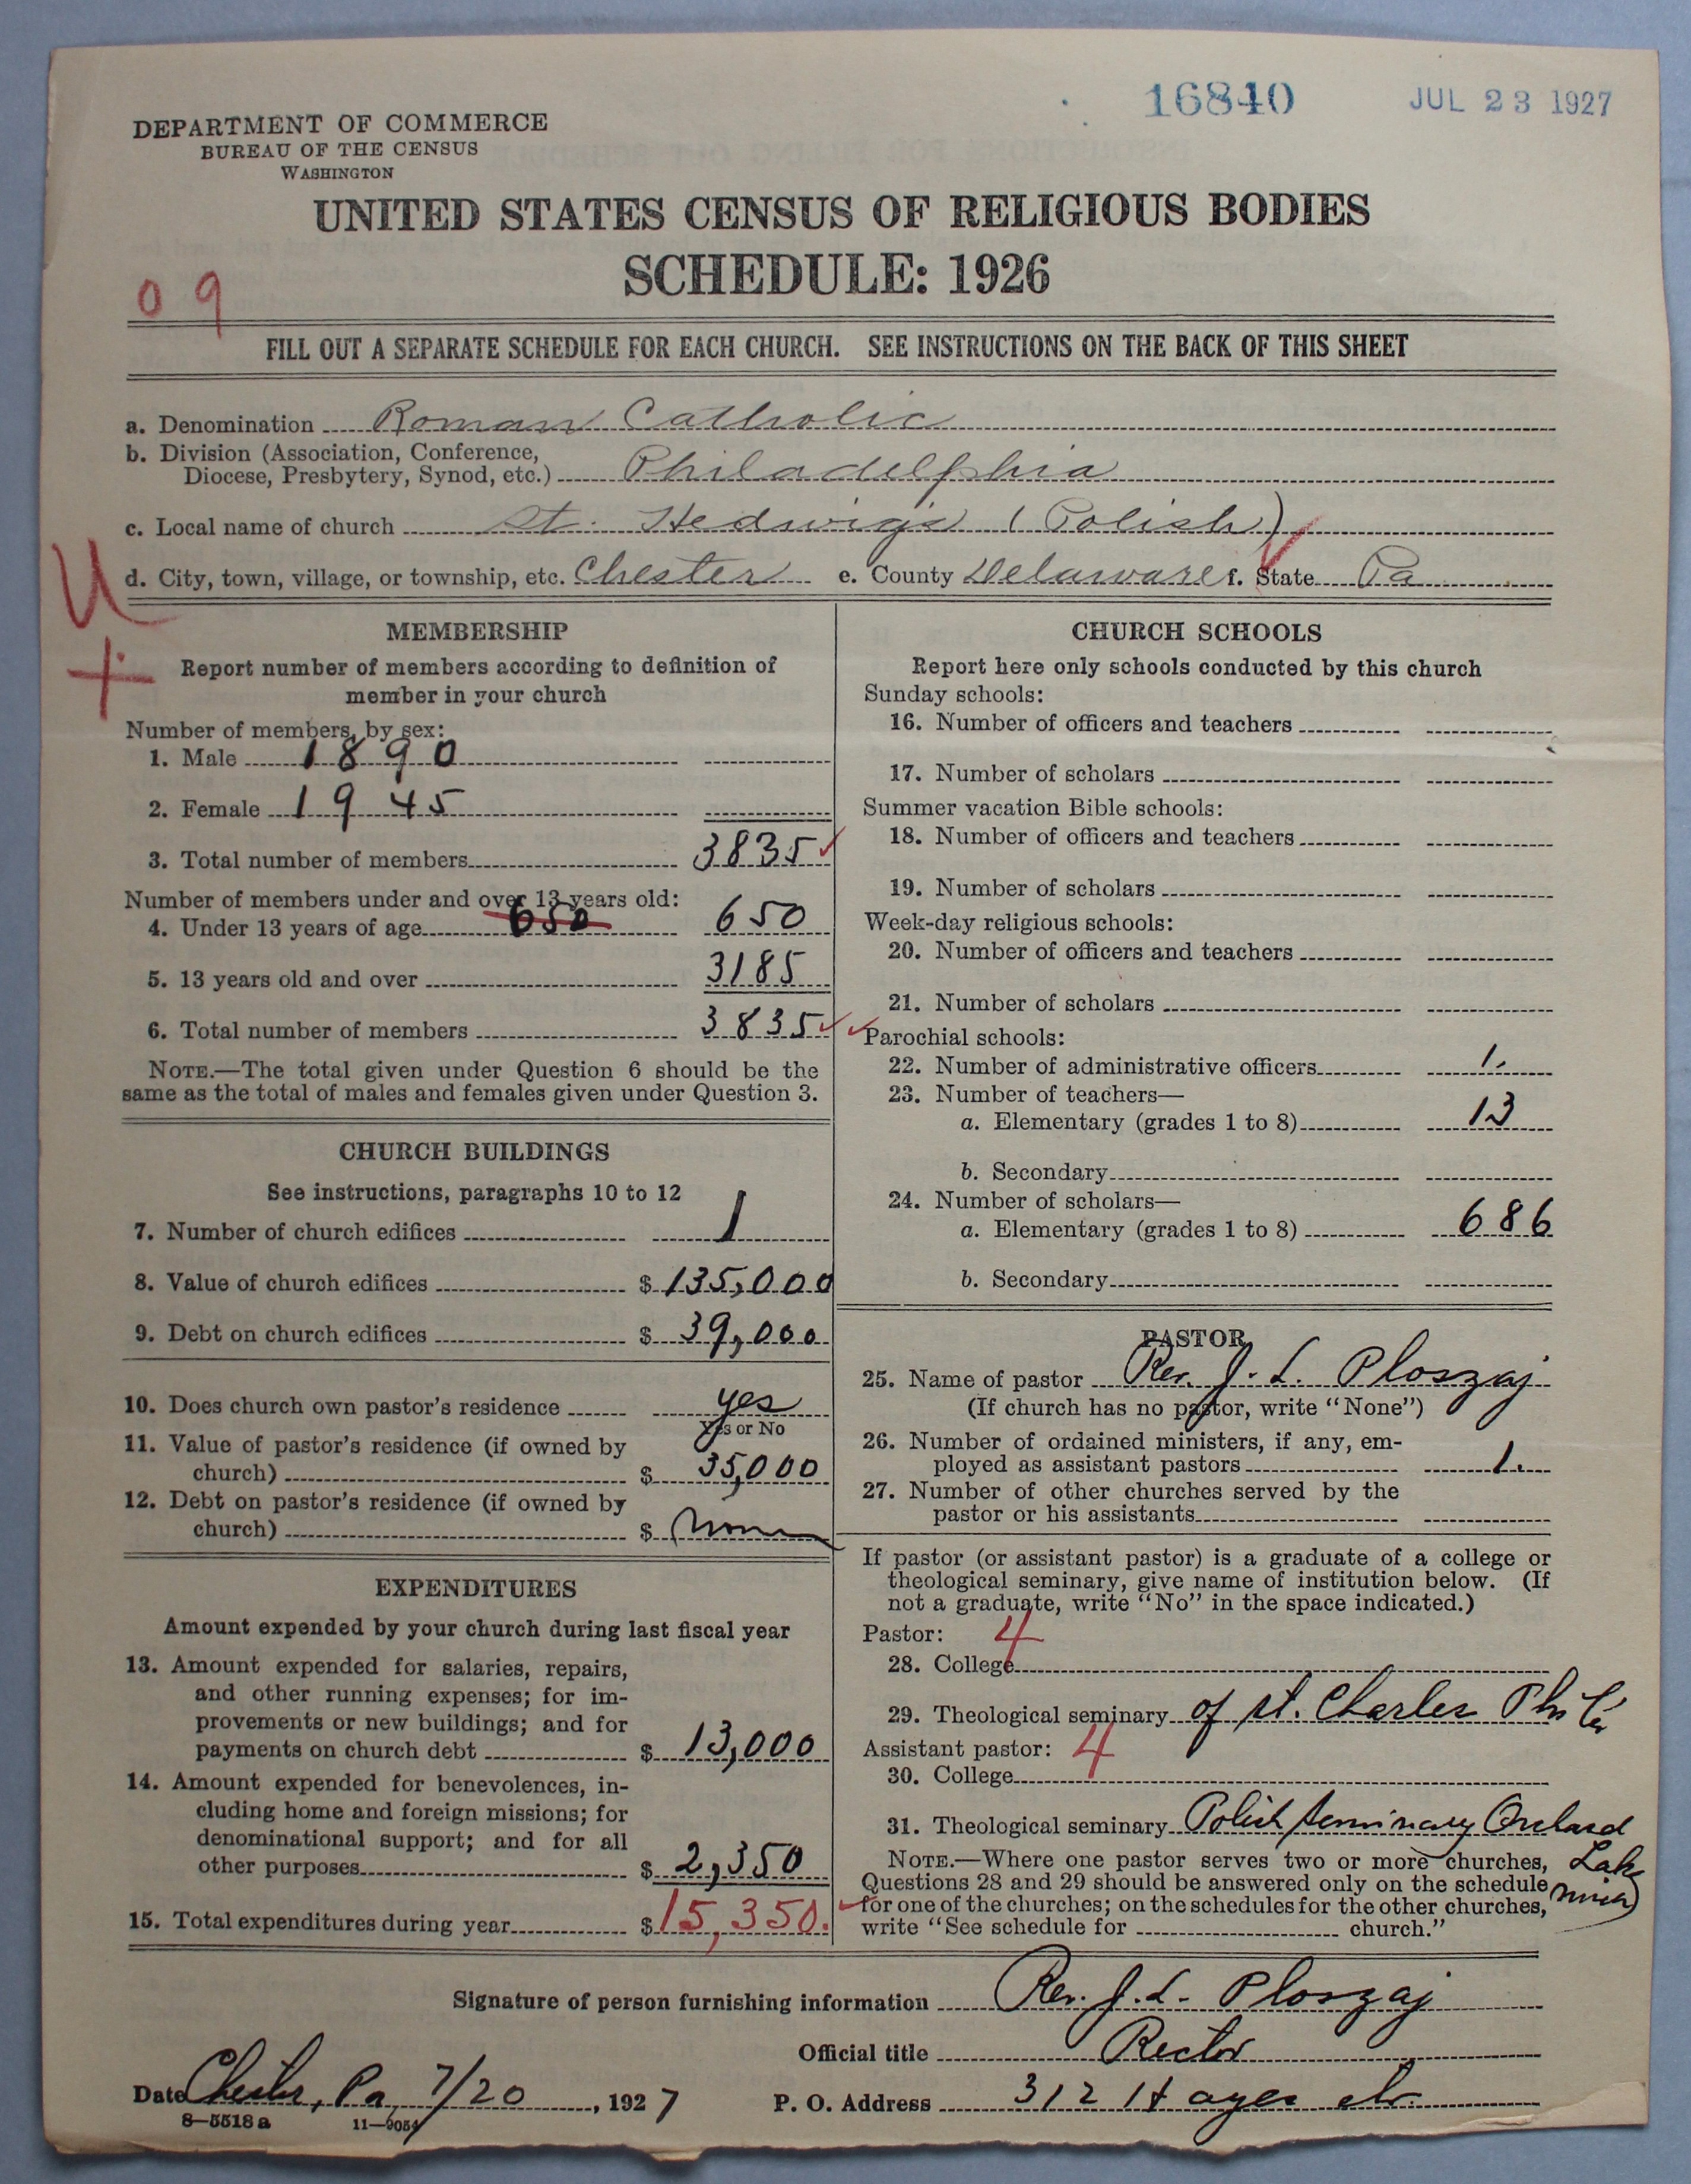 16840 JUL 23 1927
DEPARTMENT OF COMMERCE
BUREAU OF THE CENSUS
WASHINGTON
UNITED STATES CENSUS OF RELIGIOUS BODIES
SCHEDULE: 1926
09
FILL OUT A SEPARATE SCHEDULE FOR EACH CHURCH. SEE INSTRUCTIONS ON THE BACK OF THIS SHEET
a. Denomination Roman Catholic
b. Division (Association, Conference,
Diocese, Presbytery, Synod, etc.) Philadelphia
c. Local name of church St. Hedwig's (Polish)
U
d. City, town, village, or township, etc. Chester e. County Delaware f. State Pa
+
MEMBERSHIP
Report number of members according to definition of
member in your church
Number of members, by sex:
1. Male 1890
2. Female 1945
3. Total number of members 3835
Number of members under and over 13 years old:
4. Under 13 years of age 650 650
5. 13 years old and over 3185
6. Total number of members 3835
NOTE.—The total given under Question 6 should be the
same as the total of males and females given under Question 3.
CHURCH BUILDINGS
See instructions, paragraphs 10 to 12
7. Number of church edifices 1
8. Value of church edifices $ 135,000
9. Debt on church edifices $ 39,000
10. Does church own pastor's residence yes
Yes or No
11. Value of pastor's residence (if owned by
church) $ 35,000
12. Debt on pastor's residence (if owned by
church) $ None
EXPENDITURES
Amount expended by your church during last fiscal year
13. Amount expended for salaries, repairs,
and other running expenses; for im-
provements or new buildings; and for
payments on church debt $ 13,000
14. Amount expended for benevolences, in-
cluding home and foreign missions; for
denominational support; and for all
other purposes $ 2,350
15. Total expenditures during year $ 15,350.
CHURCH SCHOOLS
Report here only schools conducted by this church
Sunday schools:
16. Number of officers and teachers
17. Number of scholars
Summer vacation Bible schools:
18. Number of officers and teachers
19. Number of scholars
Week-day religious schools:
20. Number of officers and teachers
21. Number of scholars
Parochial schools:
22. Number of administrative officers 1.
23. Number of teachers—
a. Elementary (grades 1 to 8) 13
b. Secondary
24. Number of scholars—
a. Elementary (grades 1 to 8) 686
b. Secondary
PASTOR
25. Name of pastor Rev. J. L. Ploszaj
(If church has no pastor, write "None")
26. Number of ordained ministers, if any, em-
ployed as assistant pastors 1.
27. Number of other churches served by the
pastor or his assistants
If pastor (or assistant pastor) is a graduate of a college or
theological seminary, give name of institution below. (If
not a graduate, write "No" in the space indicated.)
Pastor: 4
28. College
29. Theological seminary of St. Charles Phila
Assistant pastor: 4
30. College
31. Theological seminary Polish Seminary Orchard
Lake
NOTE.—Where one pastor serves two or more churches,
Questions 28 and 29 should be answered only on the schedule
for one of the churches; on the schedules for the other churches,
write "See schedule for church."
Signature of person furnishing information Rev. J. L. Ploszaj
Official title Rector
Date Chester, Pa, 7/20, 1927 P. O. Address 312 Hayes St.
8—5518a 11—9054